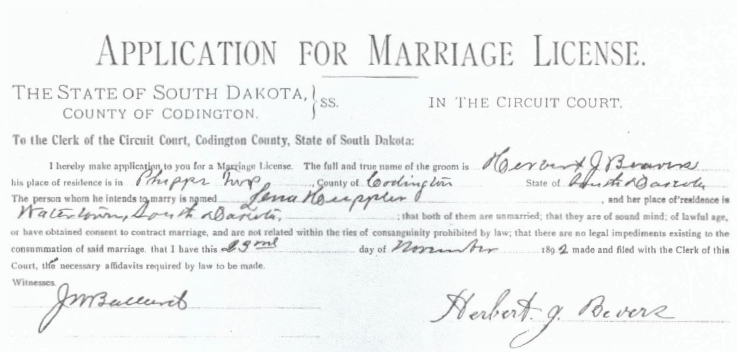 APPLICATION FOR MARRIAGE LICENSE.
THE STATE OF SOUTH DAKOTA, } SS. IN THE CIRCUIT COURT.
COUNTY OF CODINGTON.
To the Clerk of the Circuit Court, Codington County, State of South Dakota:
I hereby make application to you for a Marriage License. The full and true name of the groom is Herbert J Beavers
his place of residence is in Phipps Twp, County of Codington State of South Dakota
The person whom he intends to marry is named Lena, and her place of residence is
Watertown, South Dakota. ; that both of them are unmarried; that they are of sound mind; of lawful age,
or have obtained consent to contract marriage, and are not related within the ties of consanguinity prohibited by law; that there are no legal impediments existing to the
consummation of said marriage. that I have this 23rd day of November 1892 made and filed with the Clerk of this
Court, the necessary affidavits required by law to be made.
Witnesses.
Herbert. J. Bevers